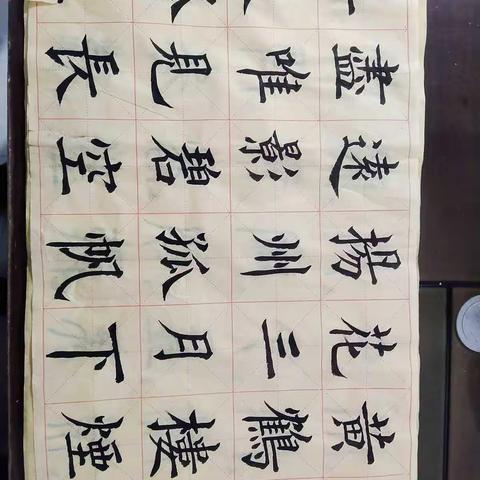 黄鶴樓煙
花三月下
揚州孤帆
遠影碧空
盡唯見長